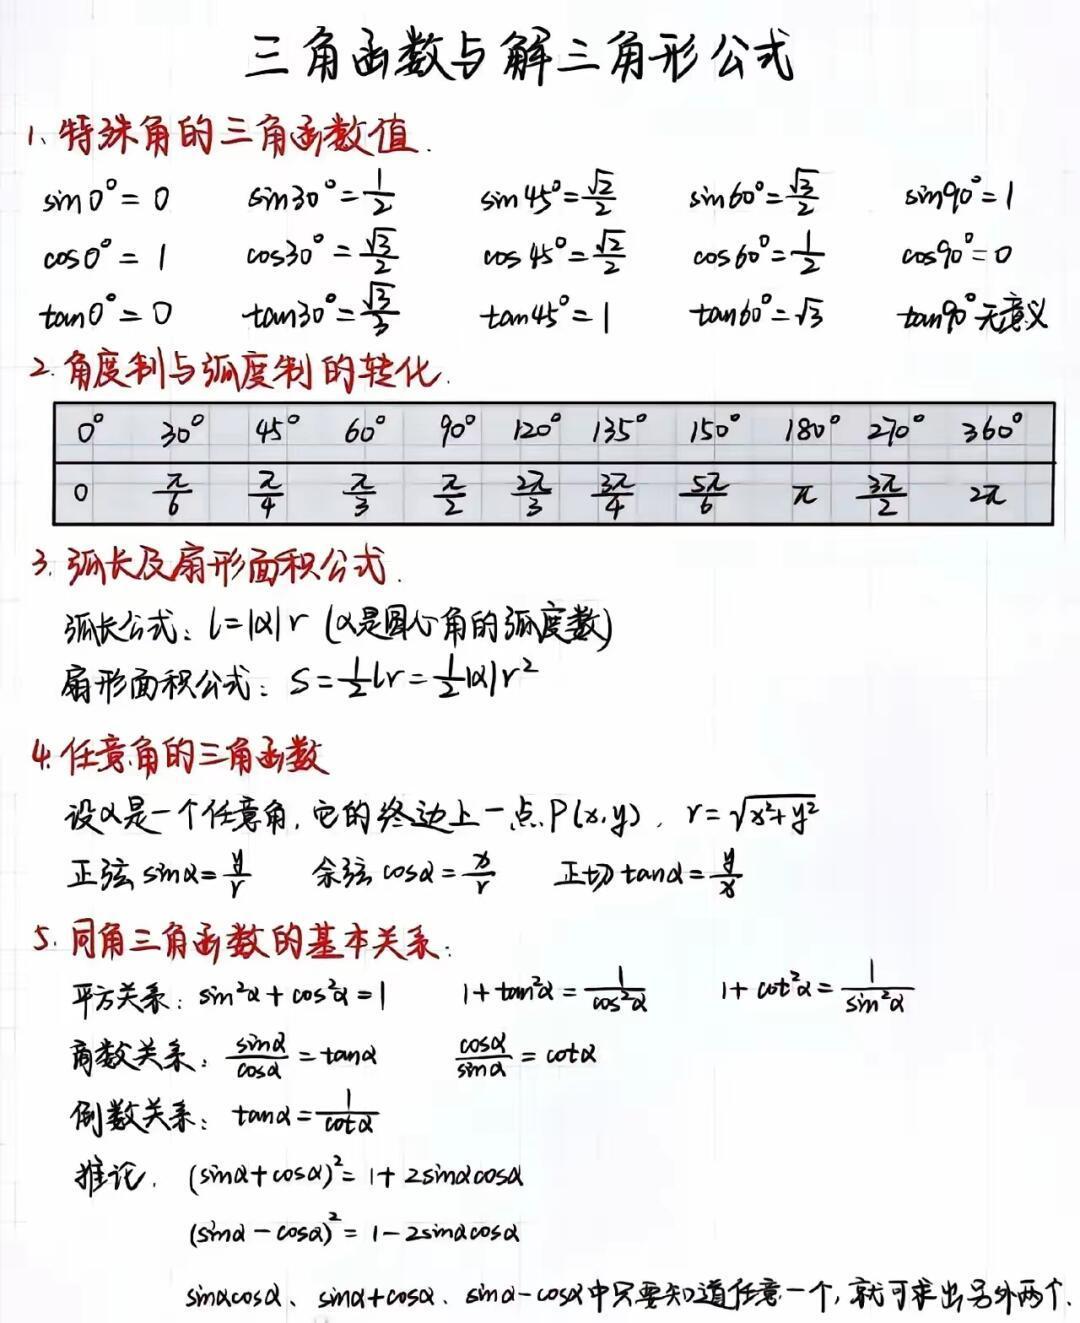 三角函数与解三角形公式
1、特殊角的三角函数值.
sin0°=0 sin30°=1/2 sin45°=√2/2 sin60°=√3/2 sin90°=1
cos0°=1 cos30°=√3/2 cos45°=√2/2 cos60°=1/2 cos90°=0
tan0°=0 tan30°=√3/3 tan45°=1 tan60°=√3 tan90°无意义
2.角度制与弧度制的转化.
0° 30° 45° 60° 90° 120° 135° 150° 180° 270° 360°
0 π/6 π/4 π/3 π/2 2π/3 3π/4 5π/6 π 3π/2 2π
3.弧长及扇形面积公式.
弧长公式: l=|α|r (α是圆心角的弧度数)
扇形面积公式: S=1/2lr=1/2|α|r²
4.任意角的三角函数
设α是一个任意角,它的终边上一点P(x,y), r=√(x²+y²)
正弦sinα=y/r 余弦cosα=x/r 正切tanα=y/x
5.同角三角函数的基本关系:
平方关系: sin²α+cos²α=1 1+tan²α=1/cos²α 1+cot²α=1/sin²α
商数关系: sinα/cosα=tanα cosα/sinα=cotα
倒数关系: tanα=1/cotα
推论. (sinα+cosα)²=1+2sinαcosα
(sinα-cosα)²=1-2sinαcosα
sinαcosα、sinα+cosα、sinα-cosα中只要知道任意一个,就可求出另外两个.